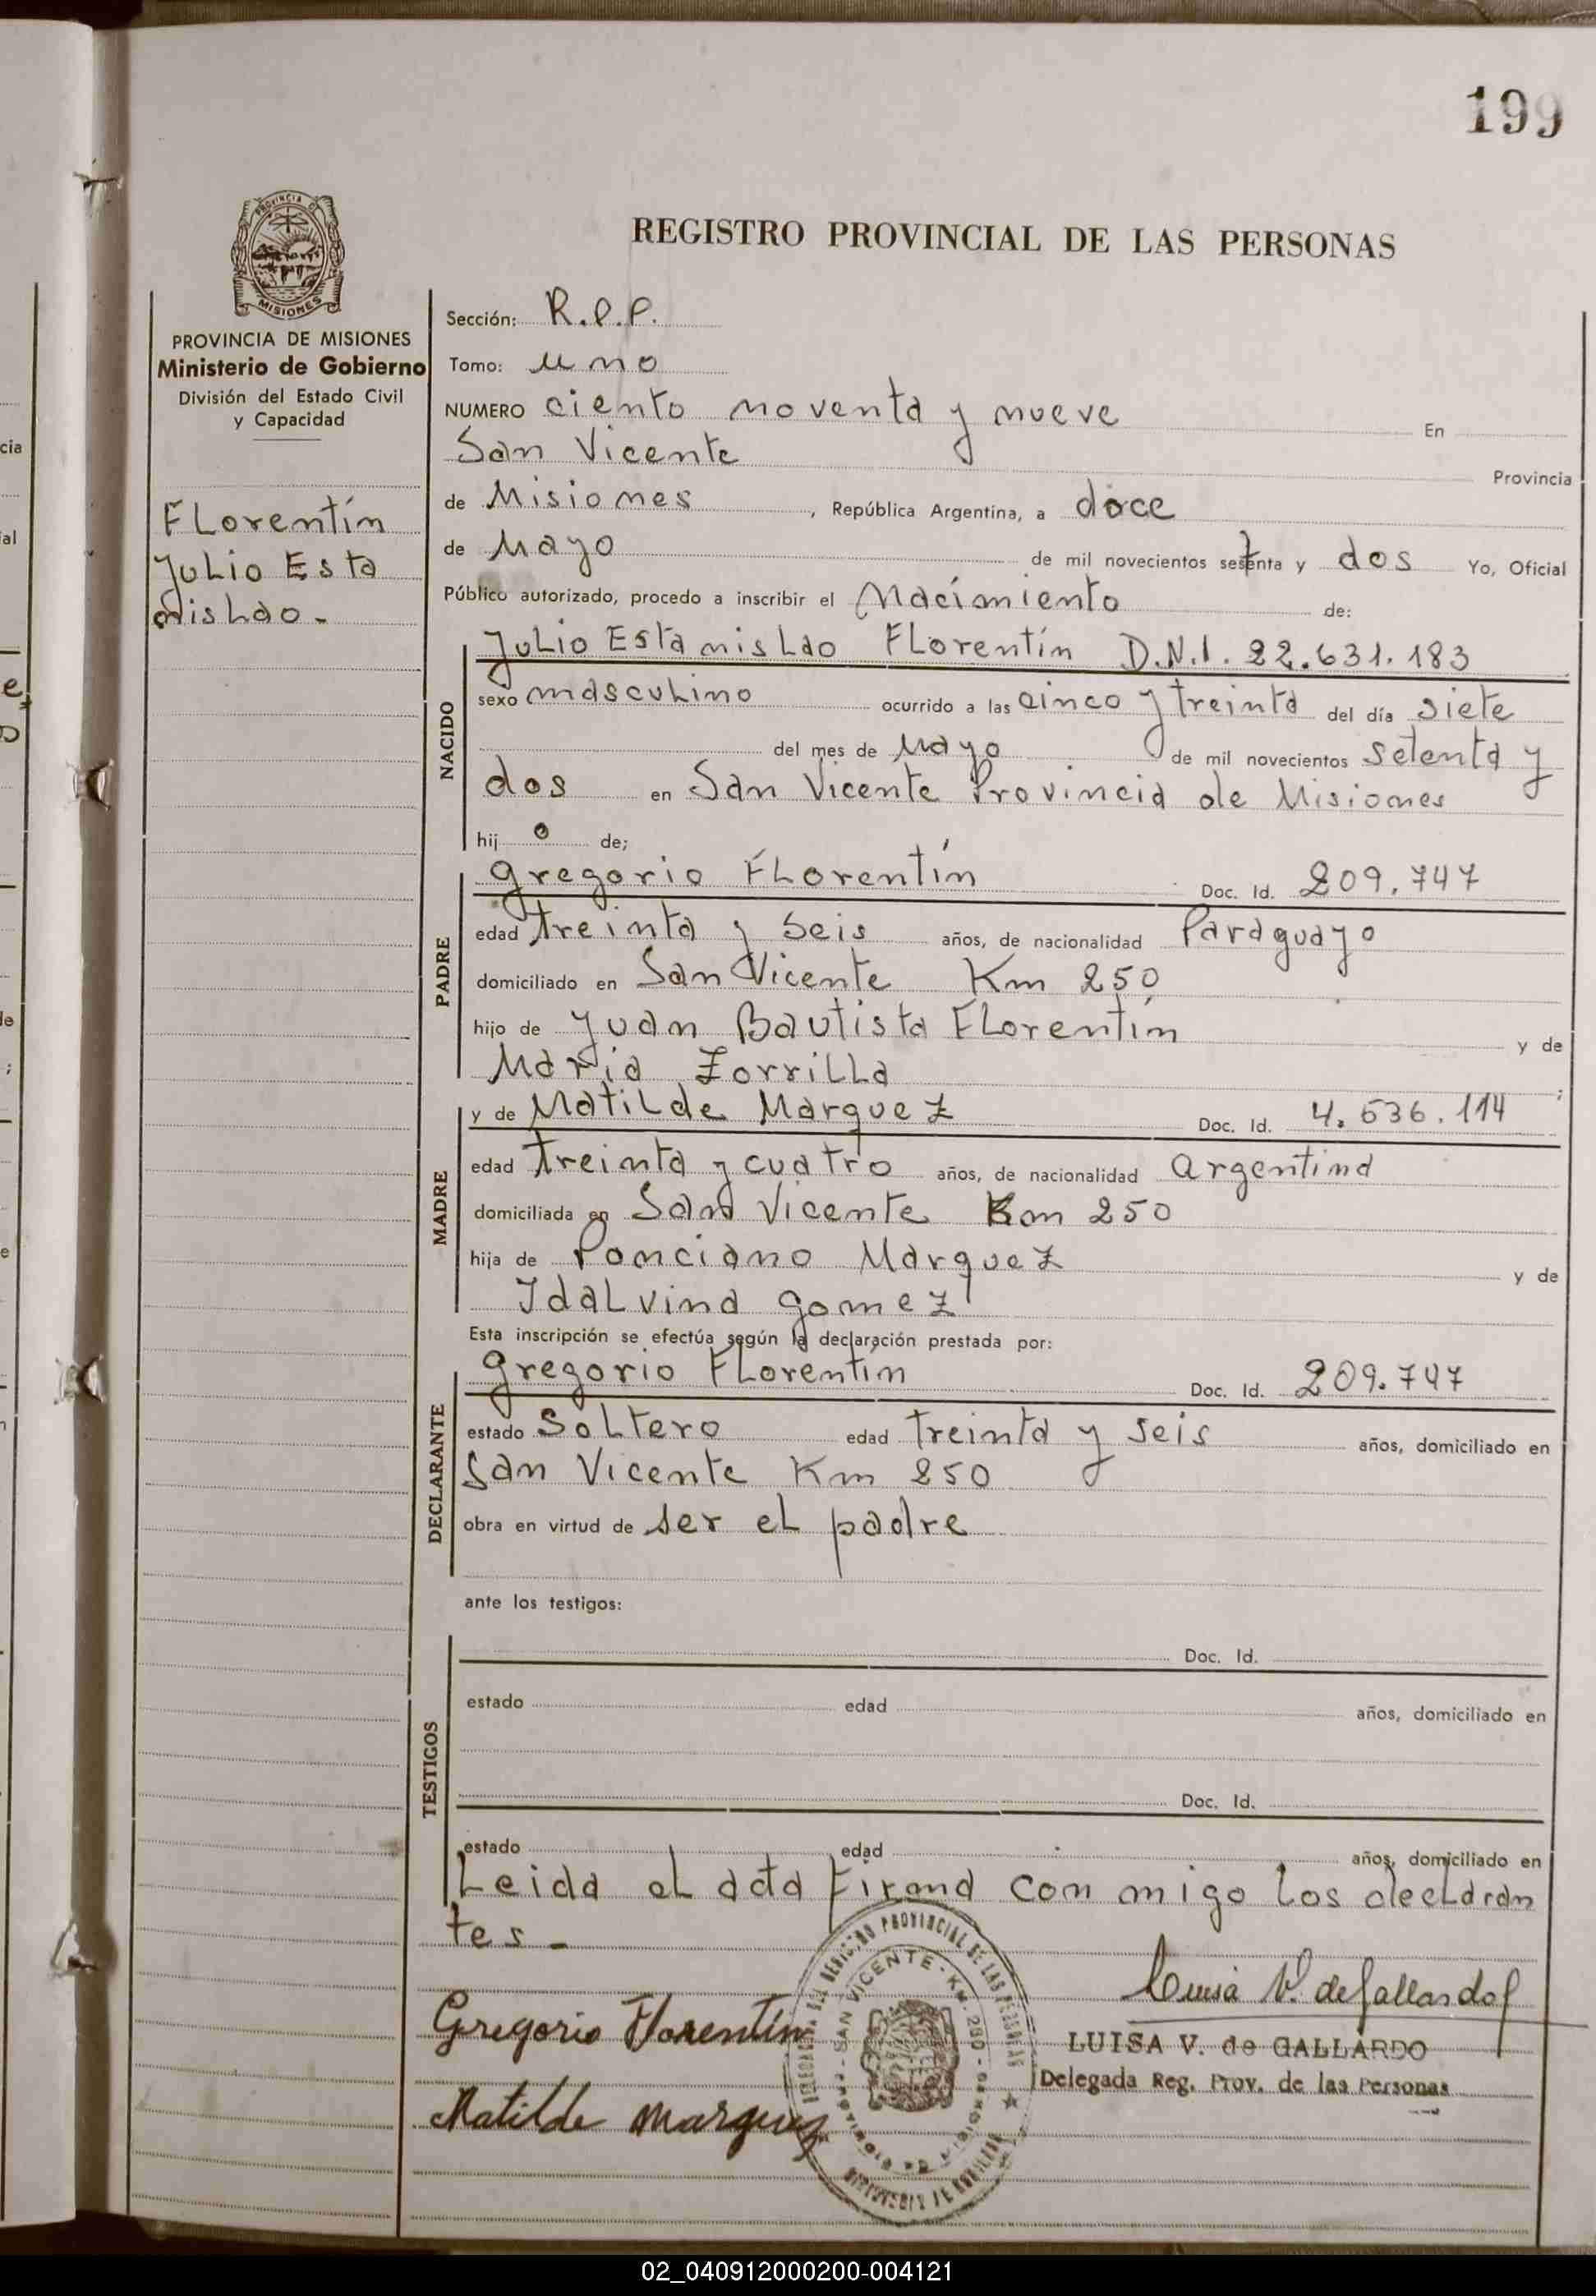 199
PROVINCIA DE
MISIONES
REGISTRO PROVINCIAL DE LAS PERSONAS
PROVINCIA DE MISIONES
Ministerio de Gobierno
División del Estado Civil
y Capacidad
Florentín
Julio Esta
nislao.-
Sección: R.P.P.
Tomo: uno
NUMERO ciento noventa y nueve En
San Vicente Provincia
de Misiones, República Argentina, a doce
de Mayo de mil novecientos setenta y dos Yo, Oficial
Público autorizado, procedo a inscribir el Nacimiento de:
NACIDO
Julio Estanislao Florentín D.N.I. 22.631.183
sexo masculino ocurrido a las cinco y treinta del día siete
del mes de Mayo de mil novecientos setenta y
dos en San Vicente Provincia de Misiones
hij o de;
PADRE
Gregorio Florentín Doc. Id. 209.747
edad treinta y seis años, de nacionalidad Paraguayo
domiciliado en San Vicente Km 250
hijo de Juan Bautista Florentín y de
Maria Zorrilla ;
MADRE
y de Matilde Marquez Doc. Id. 4.636.114
edad treinta y cuatro años, de nacionalidad argentina
domiciliada en San Vicente Km 250
hija de Ponciano Marquez y de
Idalvina Gomez
Esta inscripción se efectúa según la declaración prestada por:
DECLARANTE
Gregorio Florentín Doc. Id. 209.747
estado Soltero edad treinta y seis años, domiciliado en
San Vicente Km 250
obra en virtud de ser el padre
ante los testigos:
TESTIGOS
Doc. Id.
estado edad años, domiciliado en
Doc. Id.
estado edad años, domiciliado en
Leida el acta firmna con migo los declaran
tes -
Gregorio Florentín
Matilde Marquez
Luisa V. de Gallardo
LUISA V. de GALLARDO
Delegada Reg. Prov. de las Personas
SAN VICENTE - KM.
02_040912000200-004121